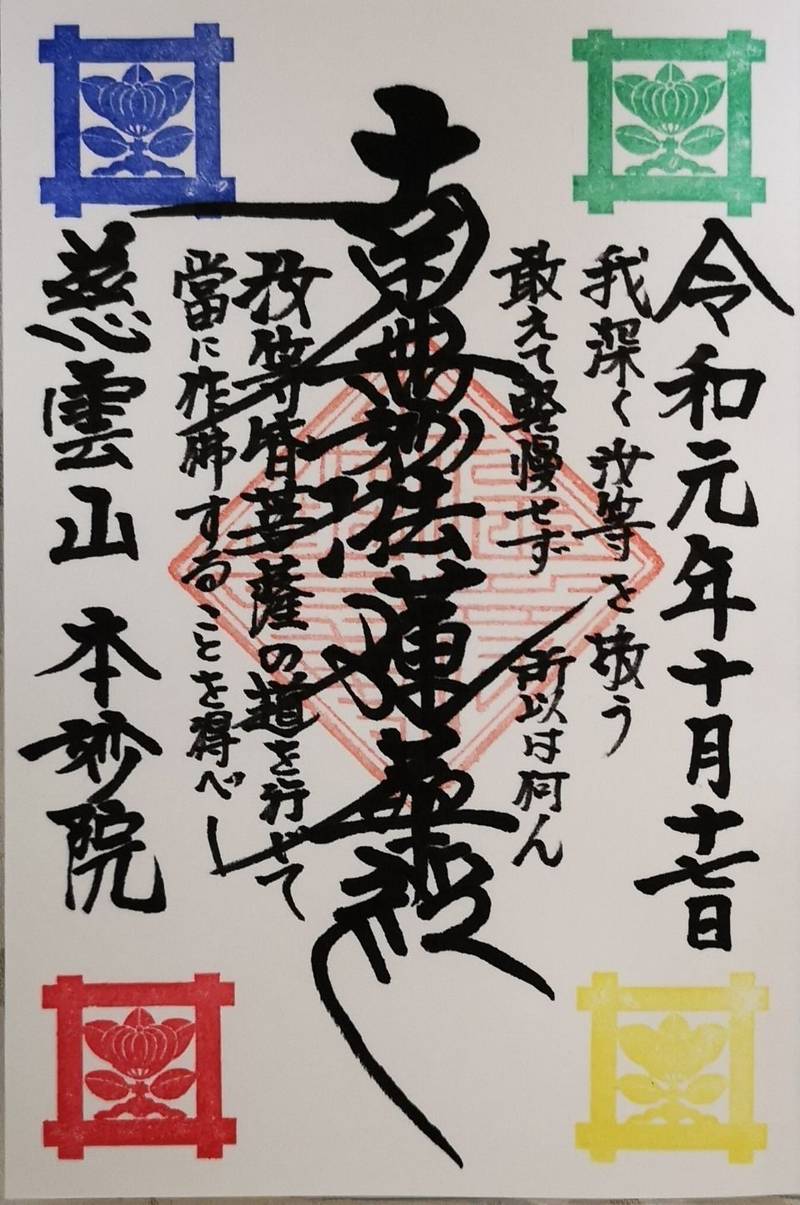 令和元年十月十七日
我深く汝等を敬う
敢えて軽慢せず 所以は何ん
南無妙法蓮華経
汝等皆菩薩の道を行じて
當に作佛することを得べし
慈雲山 本妙院